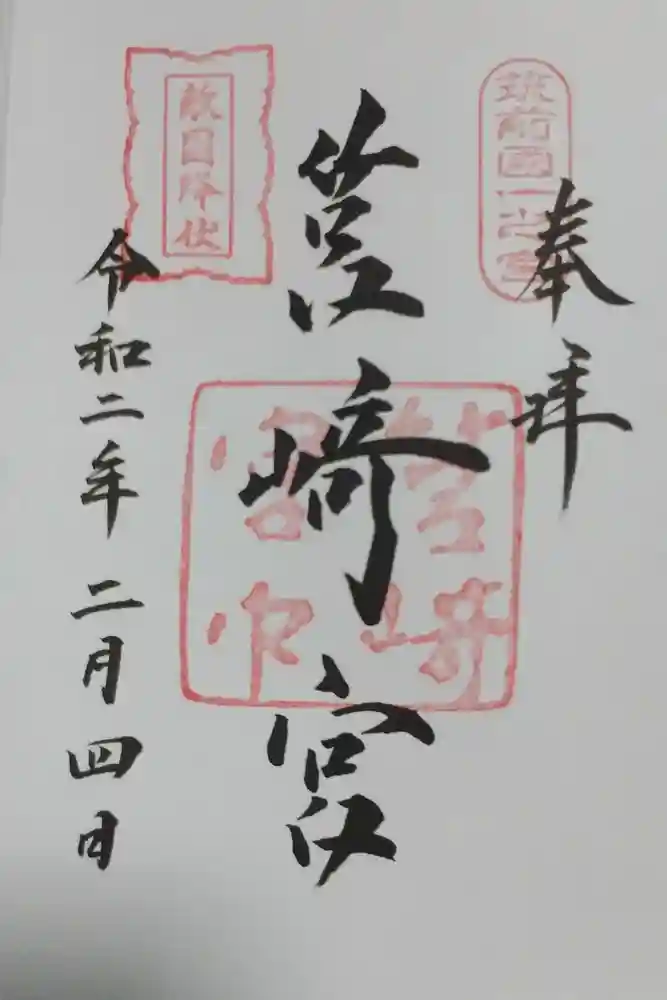 奉拝
筑前國一之宮
筥崎宮
筥崎宮印
敵國降伏
令和二年二月四日